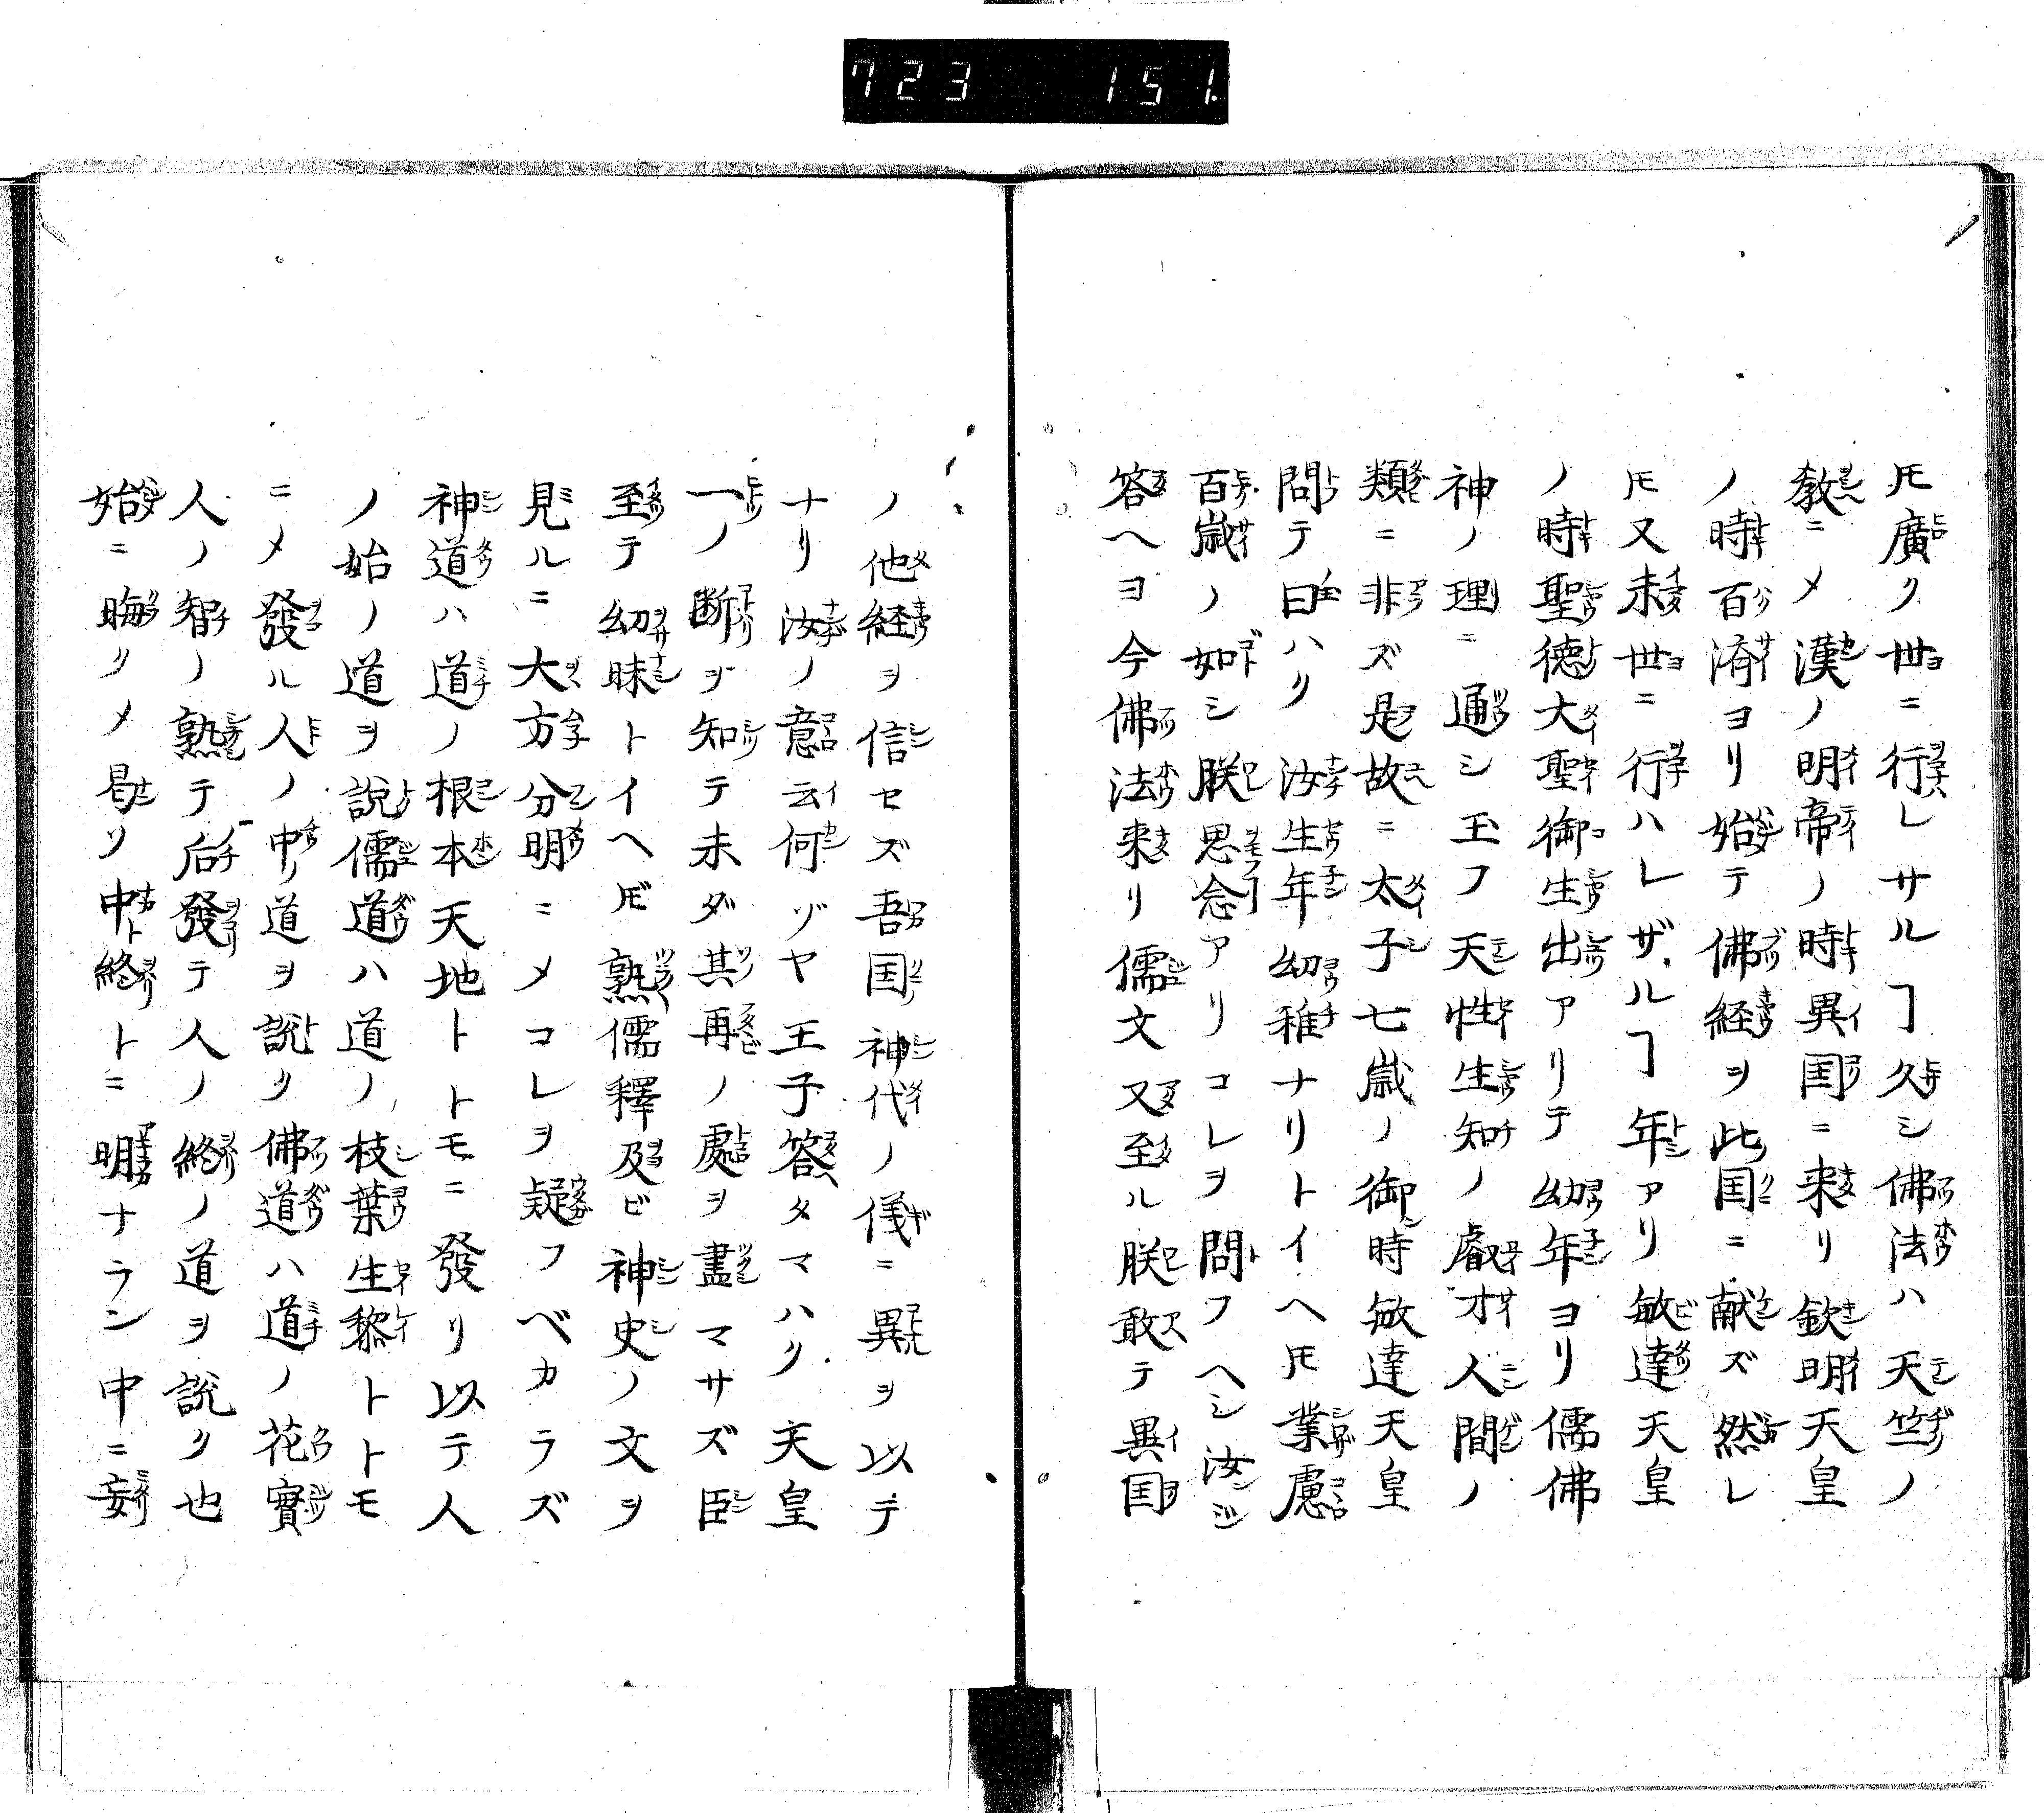 723 151.
𪜈廣ク世ニ行レサルヿ久シ佛法ハ天竺ノ
教ニメ漢ノ明帝ノ時異国ニ来リ欽明天皇
ノ時百済ヨリ始テ佛経ヲ此国ニ献ズ然レ
𪜈又未世ニ行ハレザルヿ年アリ敏達天皇
ノ時聖徳大聖御生出アリテ幼年ヨリ儒佛
神ノ理ニ通シ玉フ天性生知ノ睿才人間ノ
類ニ非ズ是故ニ太子七歳ノ御時敏達天皇
問テ曰ハク汝生年幼稚ナリトイヘ𪜈業慮
百歳ノ如シ朕思念アリコレヲ問フヘシ汝
答ヘヨ今佛法来リ儒文又至ル朕敢テ異国
ノ他経ヲ信セズ吾国神代ノ儀ニ異ヲ以テ
ナリ汝ノ意云何ゾヤ王子答タマハク天皇
一ノ断ヲ知テ未ダ其再ノ處ヲ盡マサズ臣
至テ幼昧トイヘ𪜈熟儒釋及ビ神史ノ文ヲ
見ルニ大方分明ニメコレヲ疑フベカラズ
神道ハ道ノ根本天地トトモニ發リ以テ人
ノ始ノ道ヲ説儒道ハ道ノ枝葉生黎トトモ
ニメ發ル人ノ中リ道ヲ説ク佛道ハ道ノ花實
人ノ智ノ熟テ后發テ人ノ終ノ道ヲ説ク也
始ニ晦クメ曷ソ中ト終トニ明ナラン中ニ妄